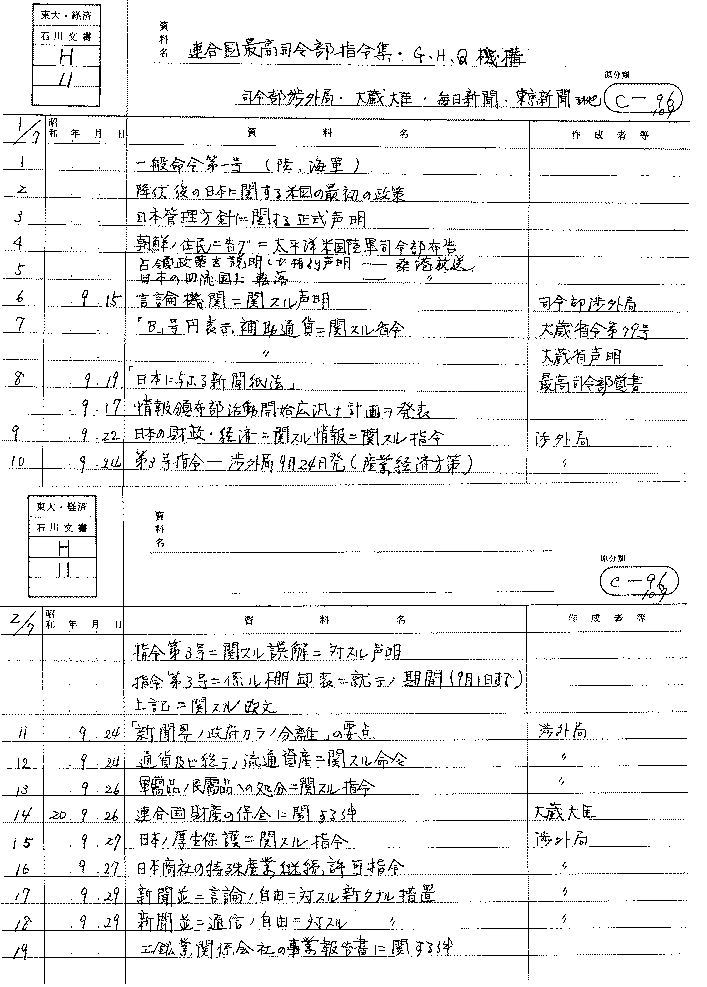 東大・経済
石川文書
H
11
資料名 連合国最高司令部指令集・G.H.Q機構
司令部渉外局・大蔵大臣・毎日新聞・東京新聞 其他
原分類
C-96
107
1/7 昭和 年 月 日 資料名 作成者等
1 一般命令第一号 (陸、海軍)
2 降伏後の日本に関する米国の最初の政策
3 日本管理方針に関する正式声明
4 朝鮮ノ住民ニ告グ=太平洋米国陸軍司令部布告
5 占領政策を説明した指針声明 — 桑港放送
日本の四流国に転落 — 〃
6 9.15 言論機関ニ関スル声明 司令部渉外局
7 「B」号円表示補助通貨ニ関スル指令 大蔵省令第79号
〃 大蔵省声明
8 9.19 「日本に与ふる新聞紙法」 最高司令部覚書
9.17 情報頒布部活動開始広汎ナ計画ヲ発表
9 9.22 日本の財政・経済ニ関スル情報ニ関スル指令 渉外局
10 9.24 第3号指令—渉外局9月24日発(産業経済方策) 〃
東大・経済
石川文書
H
11
資料名
原分類
C-96
107
2/7 昭和 年 月 日 資料名 作成者等
指令第3号ニ関スル誤解ニ対スル声明
指令第3号ニ係ル棚卸表ニ就テノ期間(9月1日まで)
上記ニ関スル欧文
11 9.24 「新聞界ノ政府カラノ分離」の要点 渉外局
12 9.24 通貨及び総テノ流通資産ニ関スル命令 〃
13 9.26 軍需品ノ民需品への処分ニ関スル指令
14 20 9.26 連合国財産の保全に関する件 大蔵大臣
15 9.27 日本ノ厚生保護ニ関スル指令 渉外局
16 9.27 日本商社の特殊産業継続許可指令 〃
17 9.29 新聞並ニ言論ノ自由ニ対スル新タナル措置 〃
18 9.29 新聞並ニ通信ノ自由ニ対スル 〃 〃
19 工鉱業関係会社の事業報告書に関する件